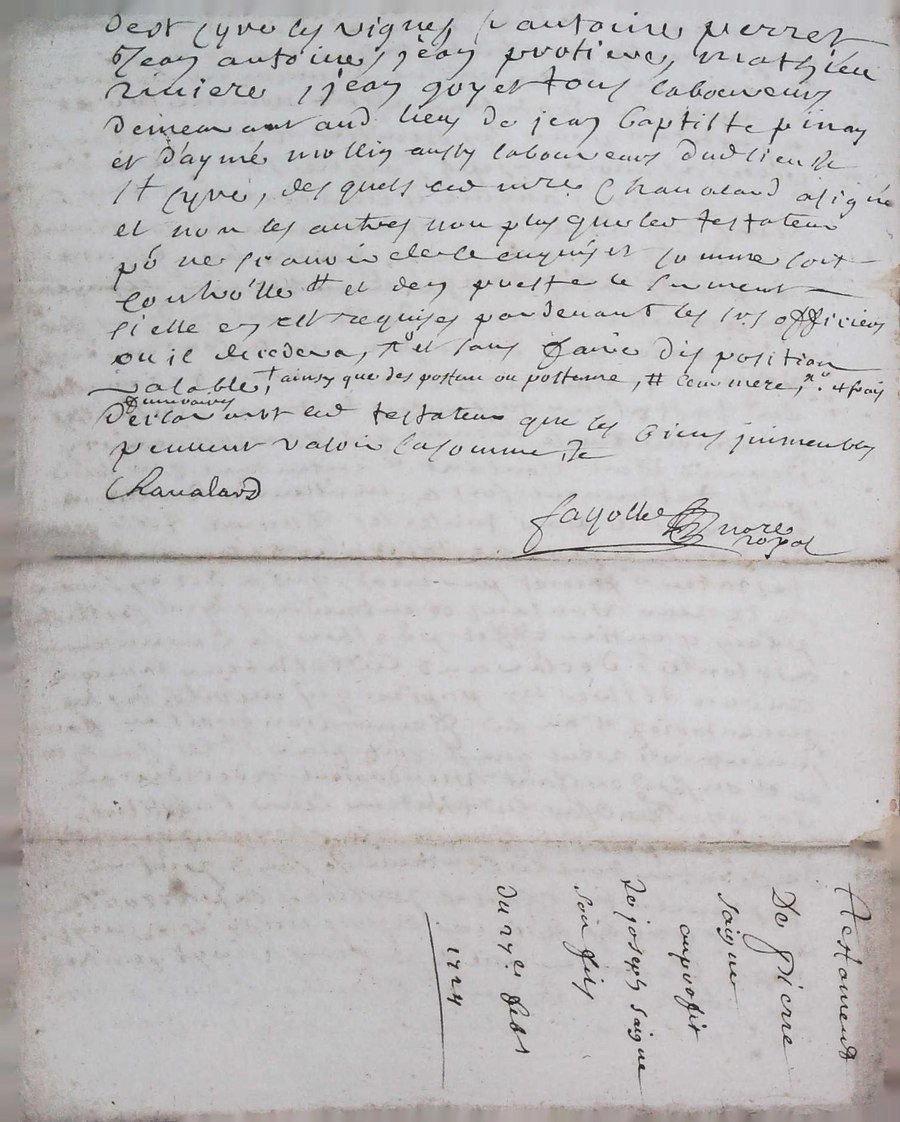 de st cyre les vignes, antoine perret
jean antoine, jean protiere, mathieu
riviere, jean goyet tous laboureurs
demeurant aud lieu de jean baptiste pinay
et d'aymé mollin aussy laboureurs dud lieu de
st cyre, des quels led mre Chavaland a signé
et non les autres non plus que led testateur
po ne sçavoir de ce enquis et sommé soit
controlle # et de prester le serment
si elle en est requise par devant les srs officiers
ou il decedera, et sans faire disposition
valable, † ainsy que des posthume ou posthume, # leur mere, frais
funeraires
declarant led testateur que les biens immeubles
peuvent valoir la somme de
Chavaland
fayolle nore
royal
Testament
De Pierre
saigne
au proffit
de joseph saigne
son fils
du 27e febr
1724